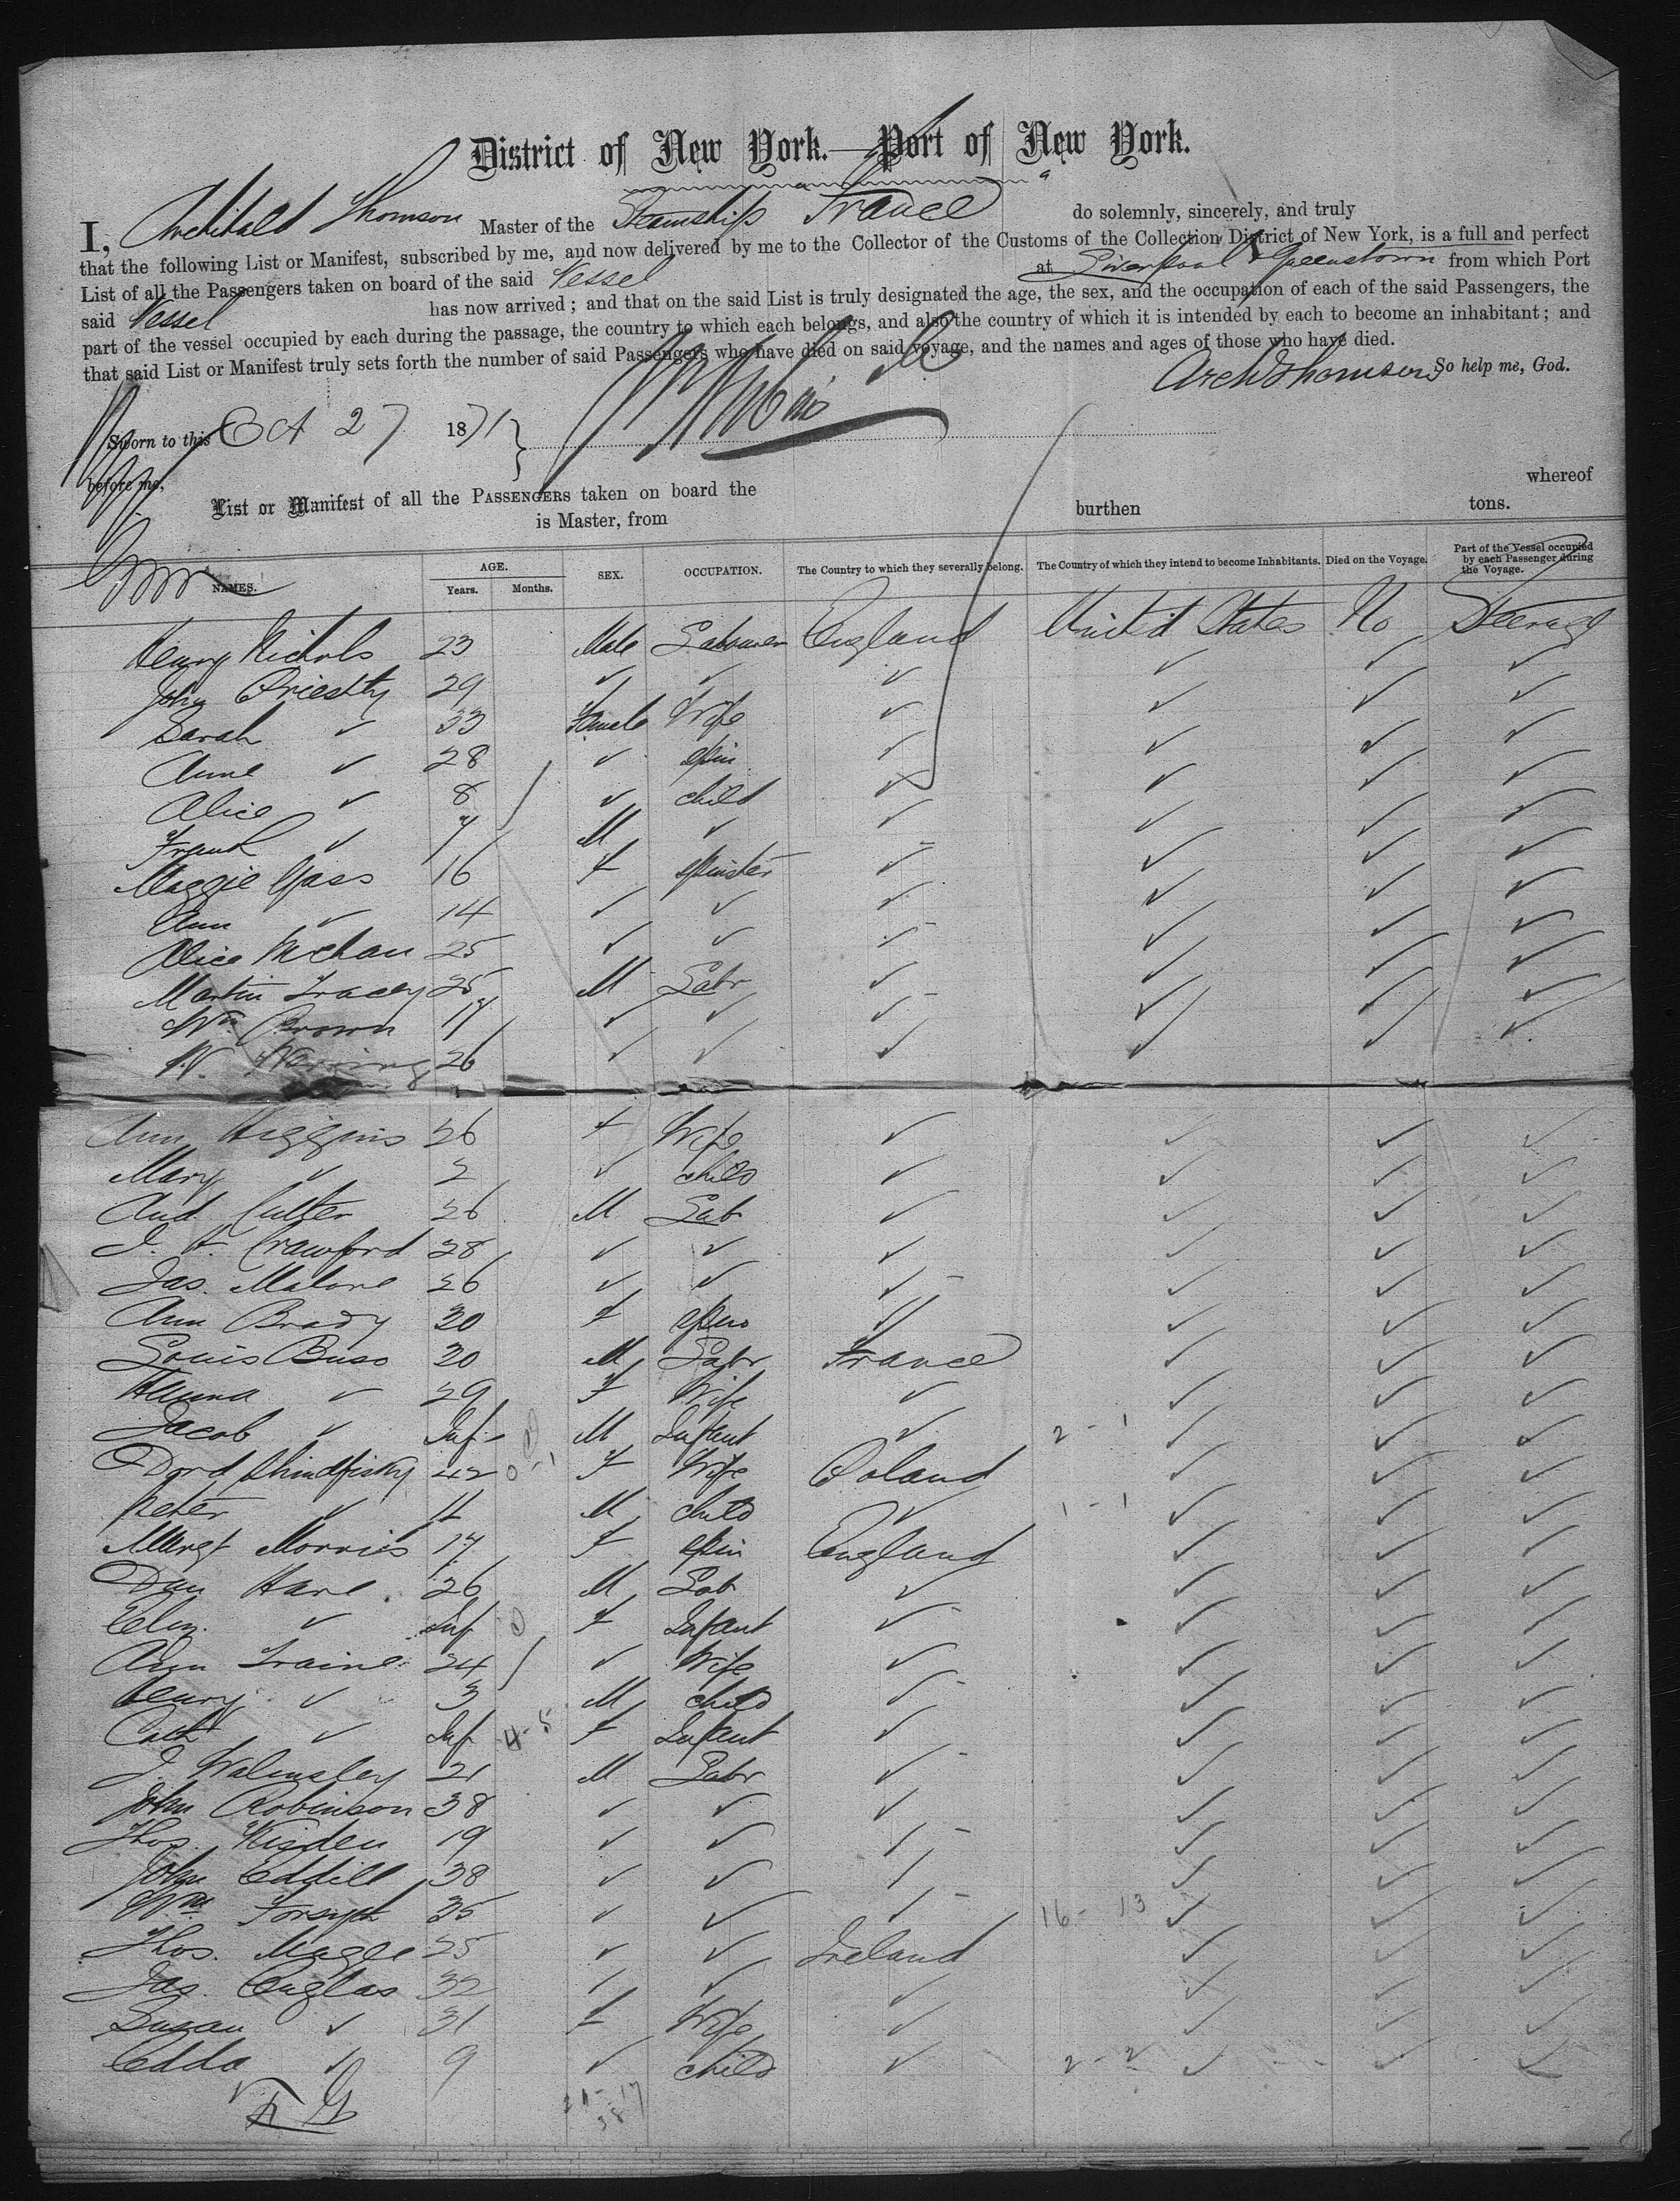 District of New York.—Port of New York.
I, Archibald Thomson Master of the Steamship France do solemnly, sincerely, and truly
that the following List or Manifest, subscribed by me, and now delivered by me to the Collector of the Customs of the Collection District of New York, is a full and perfect
List of all the Passengers taken on board of the said Vessel at Liverpool & Queenstown from which Port
said Vessel has now arrived; and that on the said List is truly designated the age, the sex, and the occupation of each of the said Passengers, the
part of the vessel occupied by each during the passage, the country to which each belongs, and also the country of which it is intended by each to become an inhabitant; and
that said List or Manifest truly sets forth the number of said Passengers who have died on said voyage, and the names and ages of those who have died.
So help me, God.
Arch Thomson
Sworn to this Oct 27 1871
before me,
List or Manifest of all the PASSENGERS taken on board the whereof
is Master, from burthen tons.
NAMES. AGE. Years. Months. SEX. OCCUPATION. The Country to which they severally belong. The Country of which they intend to become Inhabitants. Died on the Voyage. Part of the Vessel occupied by each Passenger during the Voyage.
Henry Nichols 23 Male Labourer England United States No Steerage
John Priestly 29 ✓ ✓ ✓ ✓ ✓ ✓
Sarah ✓ 33 Female Wife ✓ ✓ ✓ ✓
Anne ✓ 28 ✓ Spin ✓ ✓ ✓ ✓
Alice ✓ 8 ✓ child ✓ ✓ ✓ ✓
Frank ✓ 7 M ✓ ✓ ✓ ✓ ✓
Maggie Gass 16 F Spinster ✓ ✓ ✓ ✓
Ann ✓ 14 ✓ ✓ ✓ ✓ ✓ ✓
Alice Mehan 25 ✓ ✓ ✓ ✓ ✓ ✓
Martin Tracey 25 M Labr ✓ ✓ ✓ ✓
Wm Brown 17 ✓ ✓ ✓ ✓ ✓ ✓
W. 26 ✓ ✓ ✓ ✓ ✓ ✓
Ann Higgins 26 F Wife ✓ ✓ ✓ ✓
Mary ✓ 2 ✓ child ✓ ✓ ✓ ✓
And. Cutter 26 M Lab ✓ ✓ ✓ ✓
J. F. Crawford 28 ✓ ✓ ✓ ✓ ✓ ✓
Jas. Malone 26 ✓ ✓ ✓ ✓ ✓ ✓
Ann Brady 30 F Spin ✓ ✓ ✓ ✓
Louis Buso 30 M Labr France ✓ ✓ ✓
Hanna ✓ 29 F Wife ✓ ✓ ✓ ✓
Jacob ✓ Inf M Infant ✓ 2 - 1 ✓ ✓ ✓
42 F Wife Poland ✓ ✓ ✓
Peter ✓ 11 M child ✓ 1 - 1 ✓ ✓ ✓
Margt Morris 17 F Spin England ✓ ✓ ✓
Dan Hare 26 M Lab ✓ ✓ ✓ ✓
Eliz. ✓ Inf F Infant ✓ ✓ ✓ ✓
Ann Traine 24 ✓ Wife ✓ ✓ ✓ ✓
Henry ✓ 3 M child ✓ ✓ ✓ ✓
Cath ✓ Inf 4-5 F Infant ✓ ✓ ✓ ✓
J. Walmsley 21 M Labr ✓ ✓ ✓ ✓
John Robinson 38 ✓ ✓ ✓ ✓ ✓ ✓
Thos. Wisden 19 ✓ ✓ ✓ ✓ ✓ ✓
John Eddill 38 ✓ ✓ ✓ ✓ ✓ ✓
Wm Forsyth 35 ✓ ✓ ✓ 16 - 13 ✓ ✓ ✓
Thos. Magee 25 ✓ ✓ Ireland ✓ ✓ ✓
Jas. 32 ✓ ✓ ✓ ✓ ✓ ✓
Susan ✓ 31 F Wife ✓ ✓ ✓ ✓
Edda ✓ 9 ✓ child ✓ 2 - 2 ✓ ✓ ✓